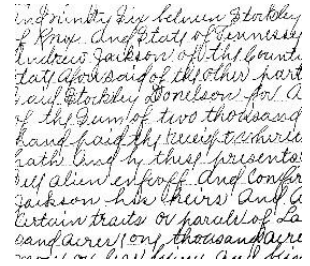 and ninety Six between Stockley
of Knox And State of Tennessee
Andrew Jackson of the County
State aforesaid of the other part
said Stockley Donelson for A
of the Sum of two thousand
hand paid the receipt
hath and by these presents
Sell alien enfeoff And Confirm
Jackson his heirs And A
Certain traits or parcels of La
sand acres (one thousand acre
more or less